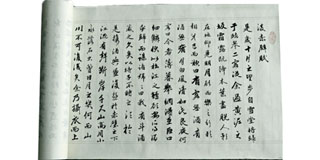 後赤壁賦
是歲十月之望步自雪堂將歸
于臨皋二客從余過黃泥之
坂霜露既降木葉盡脫人影
在地仰見明月顧而樂之行歌
相答已而嘆曰有客無酒有
酒無肴月白風清如此良夜何
客曰今者薄暮舉網得魚巨口
細鱗狀似松江之鱸顧安所得
酒乎歸而謀諸婦婦曰我有斗酒
藏之久矣以待子不時之須於
是攜酒與魚復遊於赤壁之下
江流有聲斷岸千尺山高月小
水落石出曾日月之幾何而江
山不可復識矣余乃攝衣而上